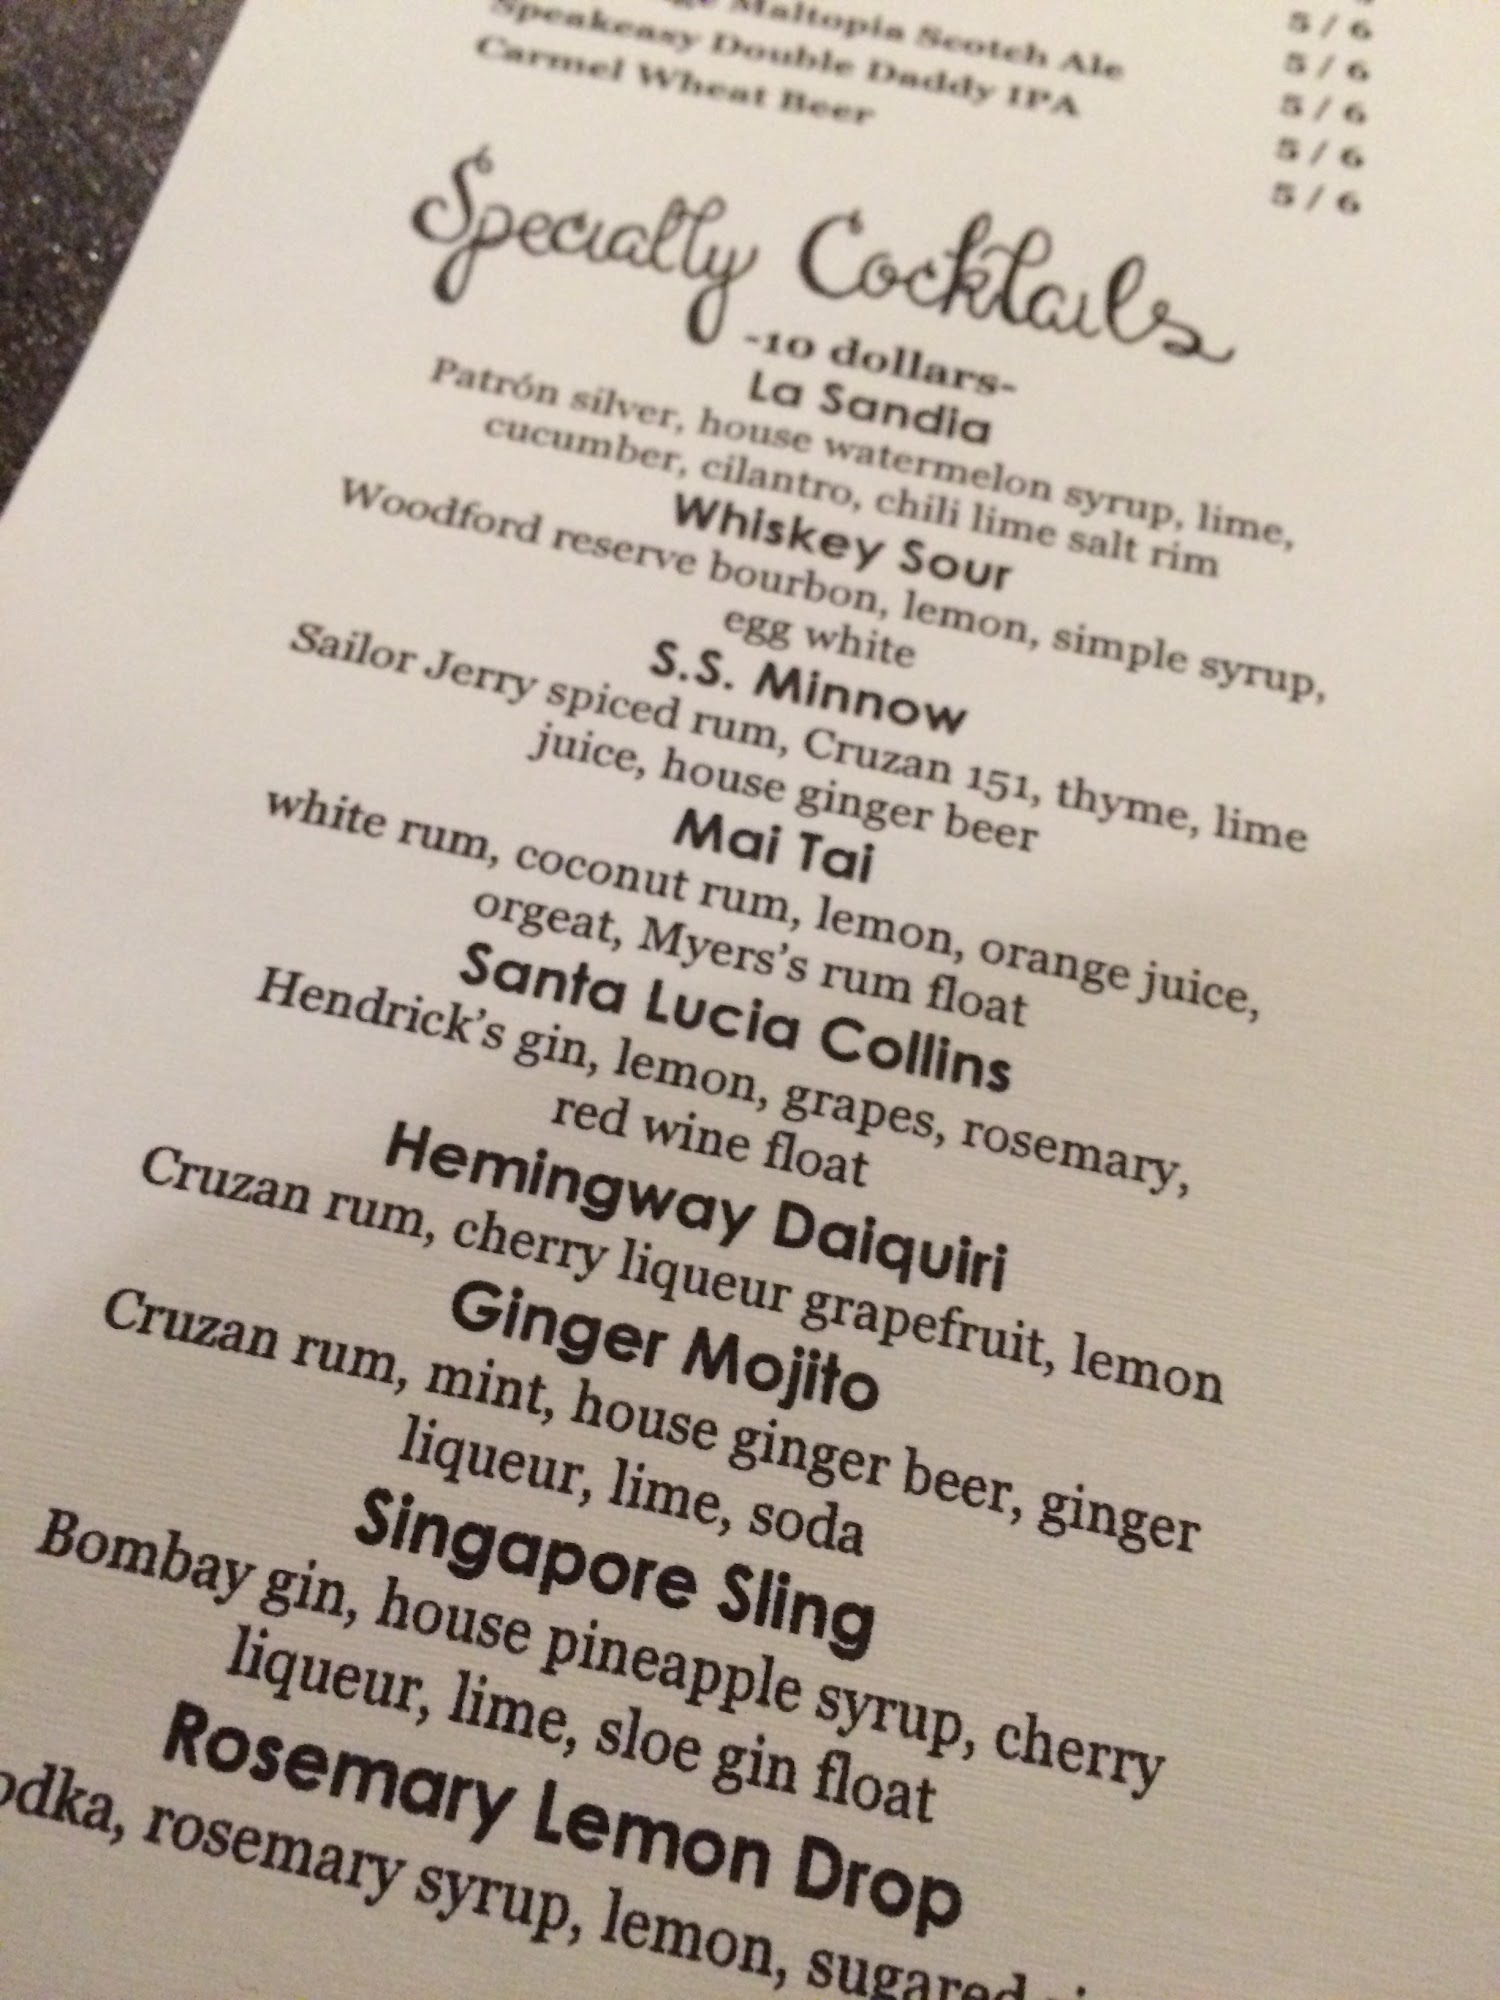 Maltopia Scotch Ale
Speakeasy Double Daddy IPA
Carmel Wheat Beer
5 / 6
5 / 6
5 / 6
5 / 6
5 / 6
Specialty Cocktails
-10 dollars-
La Sandia
Patrón silver, house watermelon syrup, lime,
cucumber, cilantro, chili lime salt rim
Whiskey Sour
Woodford reserve bourbon, lemon, simple syrup,
egg white
S.S. Minnow
Sailor Jerry spiced rum, Cruzan 151, thyme, lime
juice, house ginger beer
Mai Tai
white rum, coconut rum, lemon, orange juice,
orgeat, Myers's rum float
Santa Lucia Collins
Hendrick's gin, lemon, grapes, rosemary,
red wine float
Hemingway Daiquiri
Cruzan rum, cherry liqueur grapefruit, lemon
Ginger Mojito
Cruzan rum, mint, house ginger beer, ginger
liqueur, lime, soda
Singapore Sling
Bombay gin, house pineapple syrup, cherry
liqueur, lime, sloe gin float
Rosemary Lemon Drop
odka, rosemary syrup, lemon, sugared